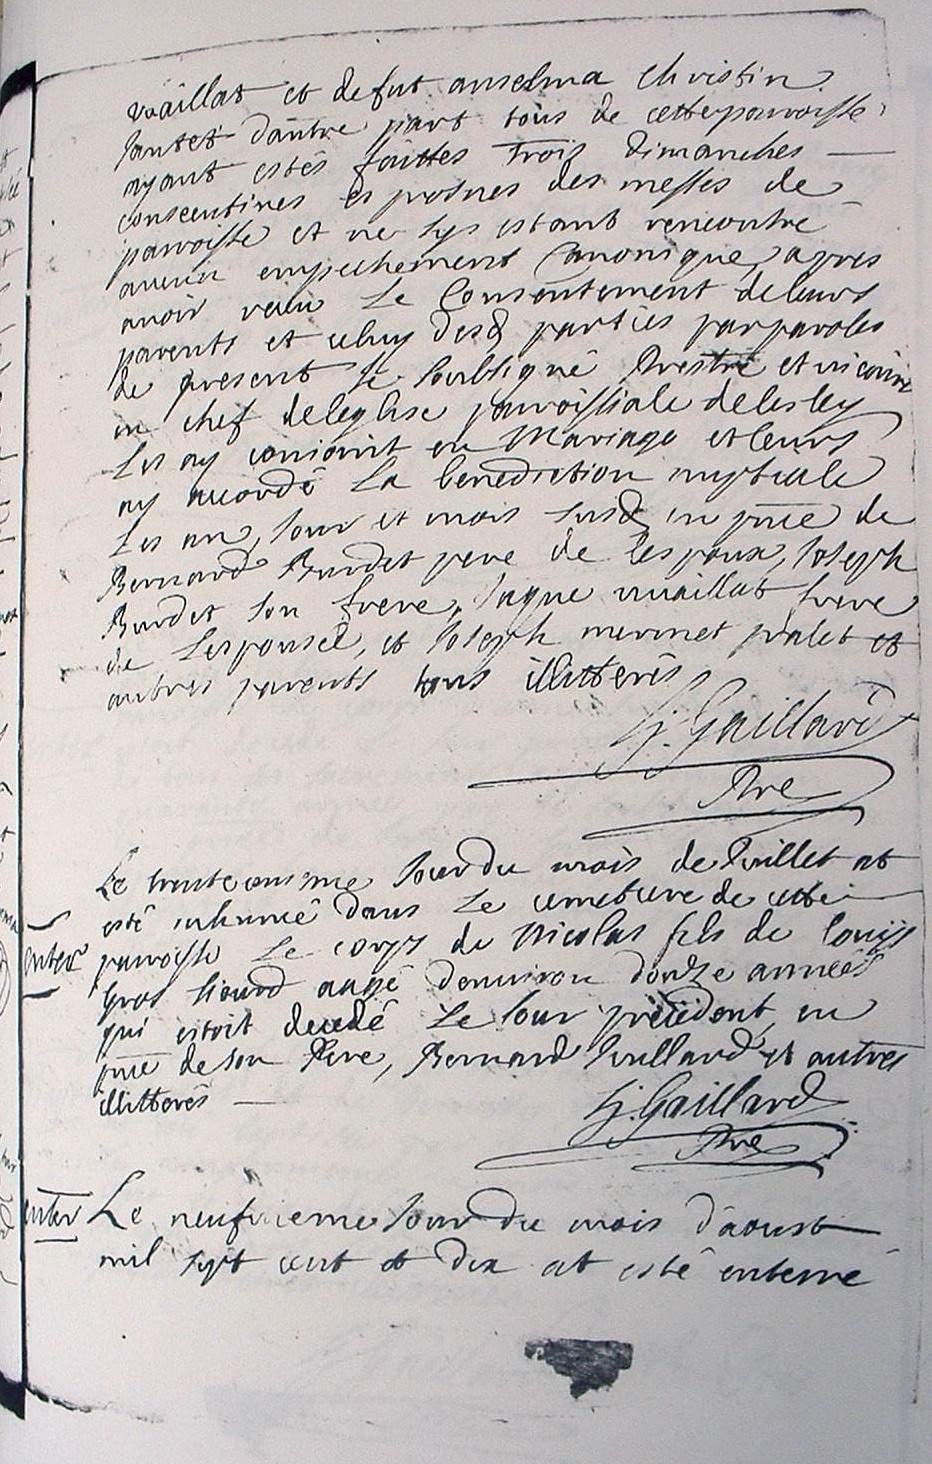 vuaillat et de fut anselma Christin
d'autre part tous de cette parroisse
ayant estés faittes Trois dimanches
consecutives es prosnes des messes de
parroisse et ne sys estant rencontré
aucun empechement Canonique, apres
avoir veu Le Consentement de leurs
parents et celuy desd parties par paroles
de present Je soubsigné Prestre et vicaire
en chef de leglise parroissiale de lesley
Les ay conioint en Mariage et leurs
ay accordé La benediction nuptiale
Les an, Jour et mois susd en pnce de
Bernard Burdet pere de lespoux, Joseph
Burdet son frere, Jaque vuaillat frere
de Lespouse, et Joseph mermet et
autres parents tous illitterés
Gaillard
Ptre
Le trenteunieme Jour du mois de Juillet at
esté inhumé dans Le cimetiere de cette
enter
parroisse Le corps de Nicolas fils de Louys
gros aagé denviron douze années
qui estoit decedé Le Jour précédent, en
pnce de son Pere, Bernard Juillard et autres
illitterés
Gaillard
Ptre
enter
Le neufvieme Jour du mois d'aoust
mil sept cent et dix at esté enterré